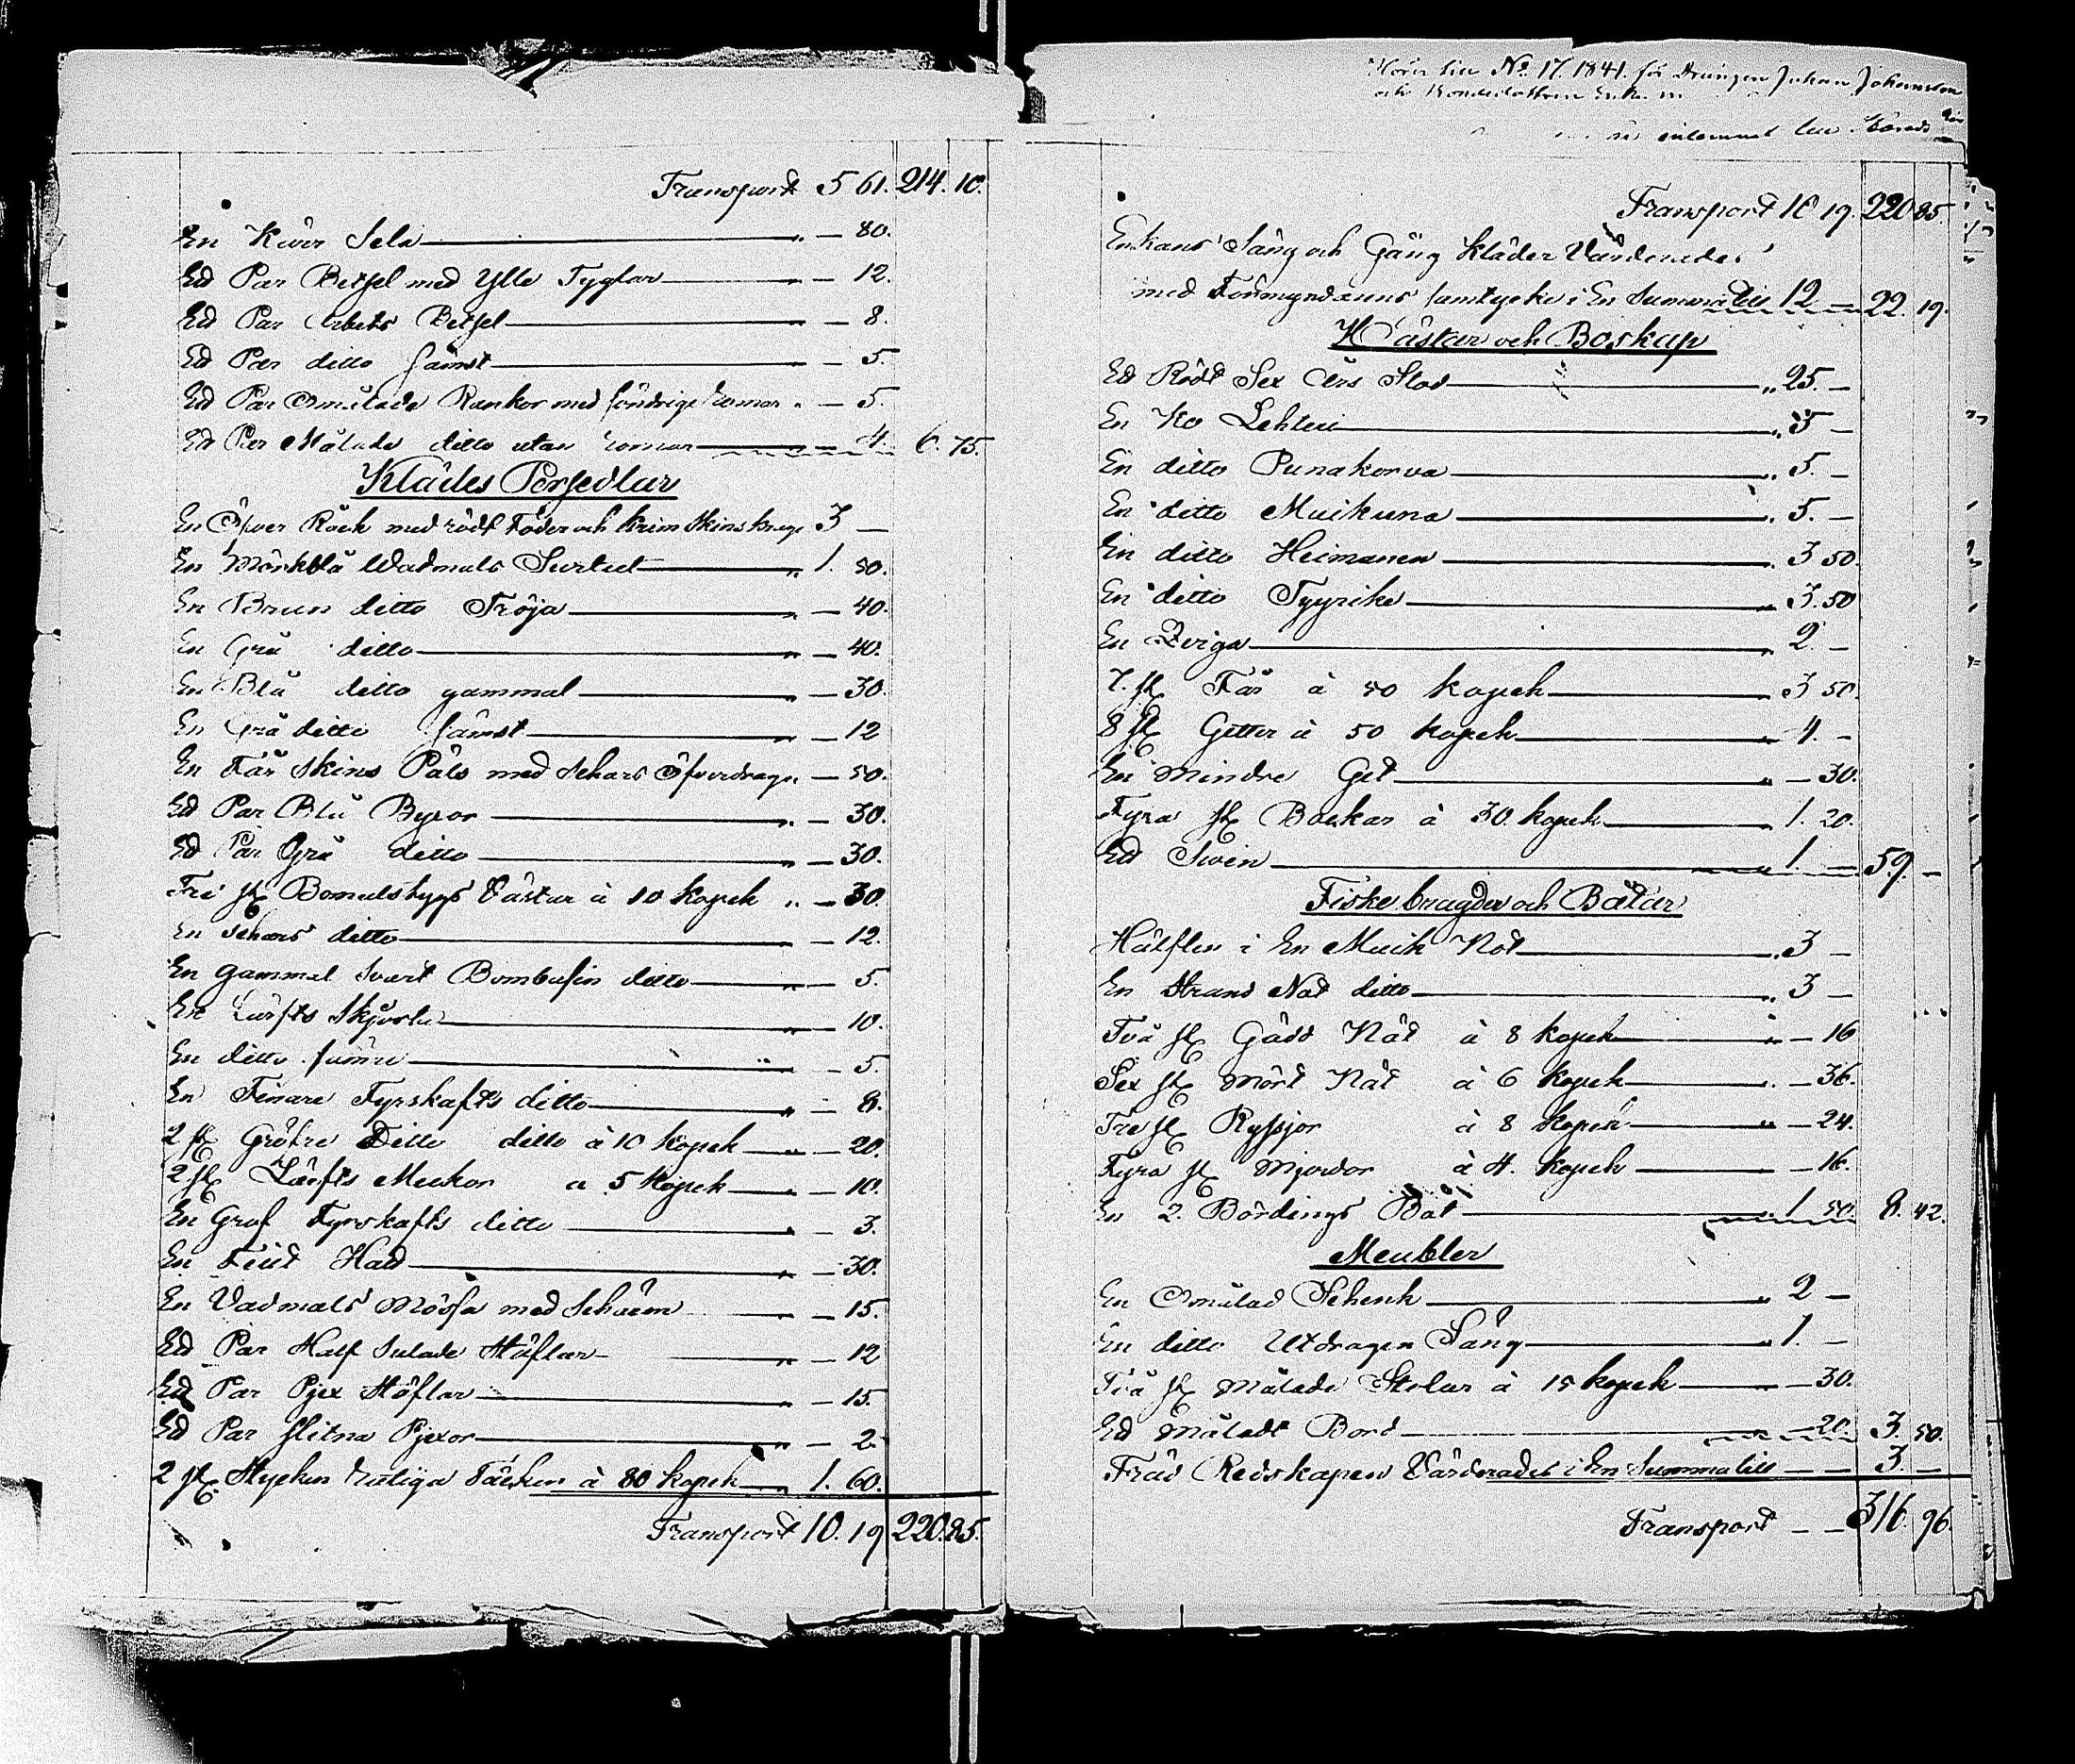 Transport 5 61. 214. 10.
En Kiörr Sela „ — 80.
Ed Par Betsel med Ylle Tyglar „ — 12.
Ed Par Arbets Betsel „ — 8.
Ed Par ditto sämst „ — 5.
Ed Par Omålade Rankor med söndrige „ — 5.
Ed Par Målade ditto utan — 4. 6. 75.
Klädes Persedlar
En Öfver Råck med rödt Foder och Krimskins krage 3 —
En Mörkblå Wadmals Surtut „ 1. 50.
En Brun ditto Tröja „ — 40.
En Grå ditto „ — 40.
En Blå ditto gammal „ — 30.
En Grå ditto sämst „ — 12
En Får Skins Päls med Schars Öfverdrage „ — 50.
Ed Par Blå Byxor „ — 30.
Ed Par Grå ditto „ — 30.
Tre st Bomulstygs Västar à 10 Kopek „ — 30.
En Schars ditto „ — 12.
En gammal Svart Bombasin ditto „ — 5.
En Lärfts Skjorta „ — 10.
En ditto sämre „ — 5.
En Finare Fyrskafts ditto „ — 8.
2 st Gröfre Ditto ditto à 10 Kopek „ — 20.
2 st Lärfts Muckor a 5 Kopek „ — 10.
En Grof Fyrskafts ditto „ — 3.
En Filt Hatt „ — 30.
En Vadmals Mössa med Schärm „ — 15.
Ed Par Half Sulade Stöflar „ — 12
Ed Par Pjex Stöflar „ — 15.
Ed Par slitna Pjexor „ — 2
2 st. Stycken Täcken à 80 Kopek „ 1. 60.
Transport 10. 19 220. 85.
No 17. 1841. för Drängen Johan Johansson
och
inlemnat
Transport 10 19. 220 85.
Enkans Säng och Gång Kläder Värderades
med Förmyndarens samtycke i En Summa till 12 — 22. 19.
Hästar och Boskap
Ed Rödt Sex Års Stod „ 25. —
En Ko Lehteri „ 5 —
En ditto Punakorva „ 5. —
En ditto Muikuna „ 5. —
En ditto Heimanen „ 3 50.
En ditto Tyyrike „ 3. 50
En Qviga „ 2. —
7. st Får à 50 Kopek „ 3 50.
8 st Getter à 50 Kopek „ 4. —
En Mindre Get „ — 30.
Fyra st Bockar à 30 kopek „ 1. 20.
Ed Svin „ 1. — 59. —
Fiske bragder och Båtar
Hälften i En Muik Not „ 3 —
En Strand Not ditto „ 3 —
Två st Gädd Nät à 8 kopek „ — 16
Sex st Mört Nät à 6 Kopek „ — 36.
Tre st Ryssjor à 8 Kopek „ — 24.
Fyra st Mjerdor à 4. Kopek — 16.
En 2. Bördings Båt „ 1 50. 8. 42.
Meubler
En Omålad Schenk „ 2 —
En ditto Utdragen Säng „ 1. —
Två st Målade Stolar à 15 kopek — 30.
Ed Måladt Bord — 20. 3. 50.
Träd Redskapen Värderades i En Summa till — — 3. —
Transport — — 316. 96.